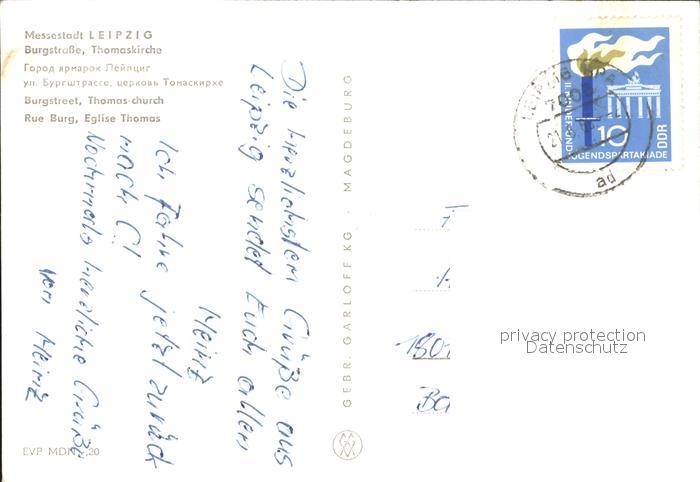 Messestadt LEIPZIG
Burgstraße, Thomaskirche
Город ярмарок Лейпциг
ул. Бургштрассе, церковь Томаскирхе
Burgstreet, Thomas-church
Rue Burg, Eglise Thomas
Die herzlichsten Grüße aus
Leipzig sendet Euch allen
Heinz
Ich fahre jetzt zurück
nach C!
Nochmals herzliche Grüße
von Heinz
EVP MDN 0,20
GEBR. GARLOFF KG · MAGDEBURG
LEIPZIG
ad
II. KINDER- UND
JUGENDSPARTAKIADE
10
DDR
1801
privacy protection
Datenschutz